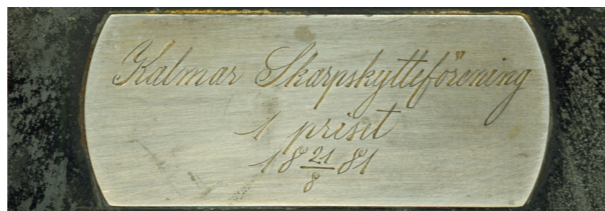 Kalmar Skarpskytteförening
1 priset
18 21/8 81